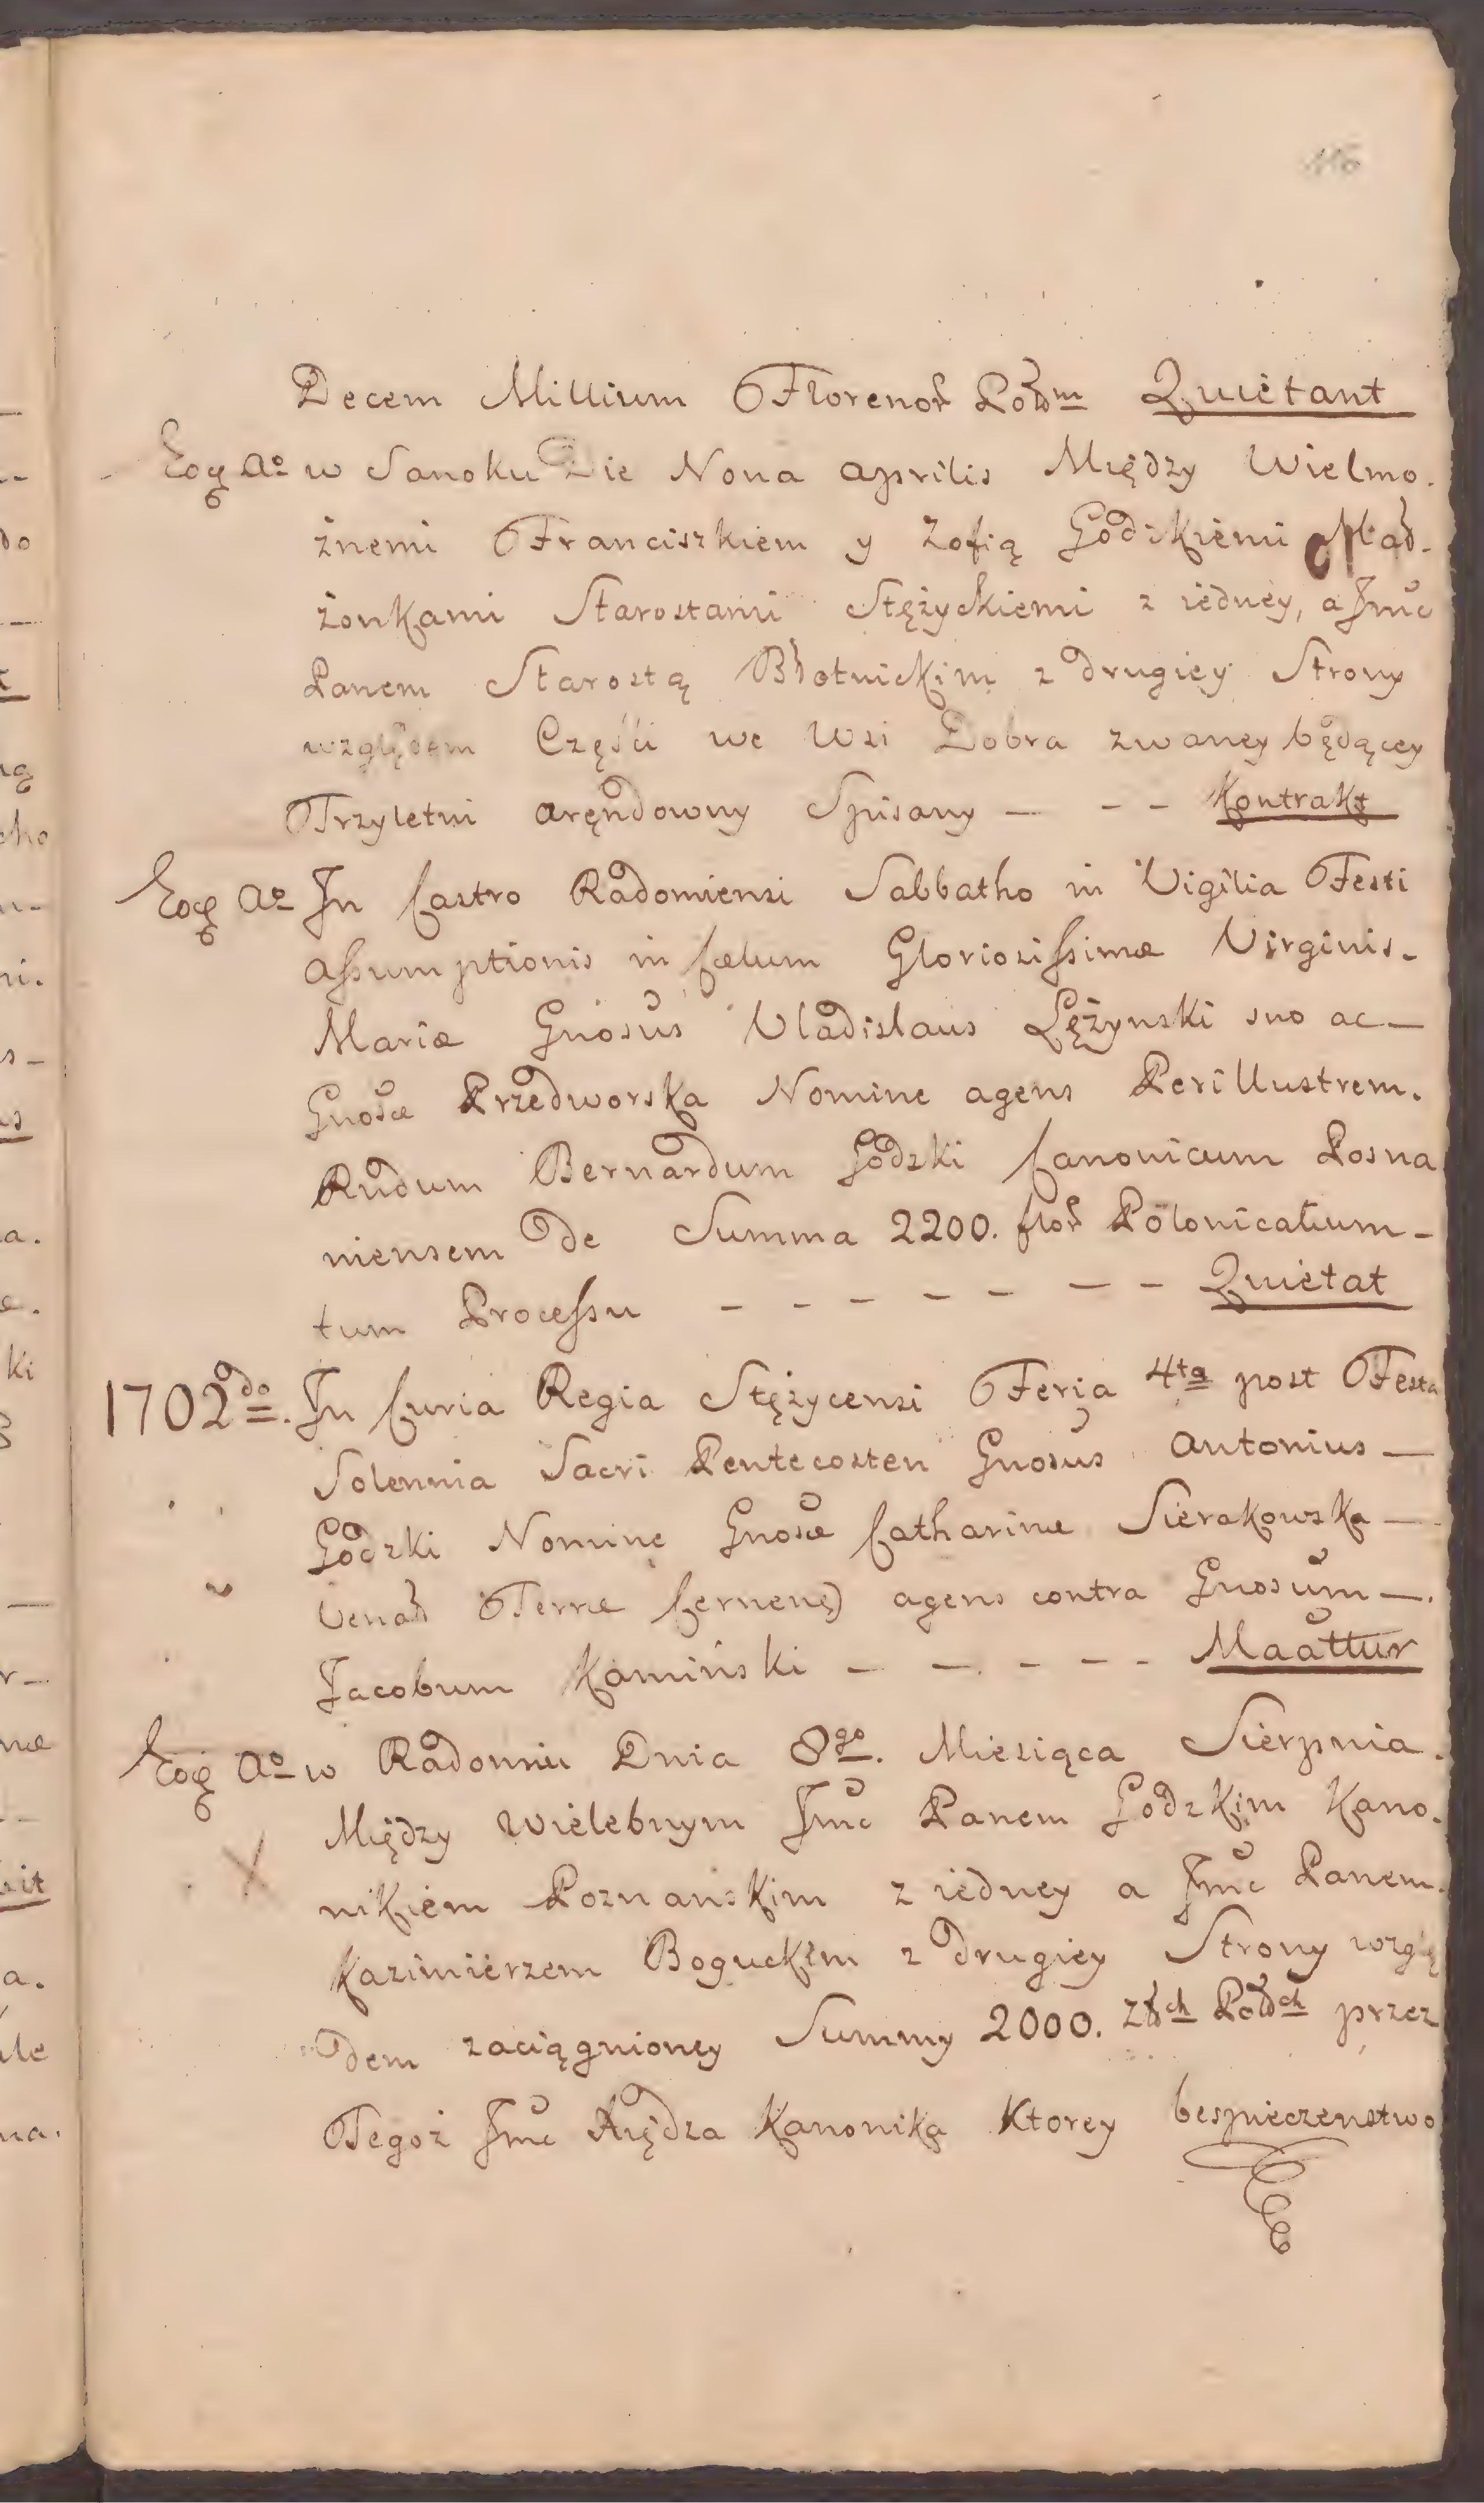 116
Decem Millium Florenoꝝ Polłm Quietant
Eoꝗ Ao w Sanoku Die Nona Aprilis Między Wielmo.
żnemi Franciszkiem y Zofią Godzkiemi Mał.
żonkami Starostami Stężyckiemi z iedney, a Jmć
Panem Starostą Błotnickim z drugiey Strony
względem Części we Wsi Dobra zwaney będącey
Trzyletni Aręndowny Spisany — - - Kontrakt
Eoꝗ Ao In Castro Radomiensi Sabbatho in Vigilia Festi
Assumptionis in Cælum Gloriosissimæ Virginis.
Mariæ Gnosus Vladislaus Lężynski suo ac —
Gnosæ Przedworska Nomine agens Perillustrem.
Rndum Bernardum Godzki Canonicum Posna
niensem De Summa 2200. floꝝ Polonicalium —
tum Processu - - - - - — - Quietat
1702do. In Curia Regia Stężycensi Feria 4ta post Festa
Solennia Sacri Pentecosten Gnosus Antonius —
Godzki Nomine Gnosæ Catharinæ Sierakowska —
Venał Terræ Cernens) agens contra Gnosum —.
Jacobum Kamiński — — - - - Maattur
Eoꝗ Ao w Radomiu Dnia 8go. Miesiąca Sierpnia.
Między Wielebnym Jmć Panem Godzkim Kano.
nikiem Poznanskim z iedney a Jmć Panem.
Kazimierzem Boguckim z drugiey Strony wzglę
dem zaciągnioney Summy 2000. Złłch Polłch przez
Tegoż Jmć Xiędza Kanonika Ktorey bespieczenstwo